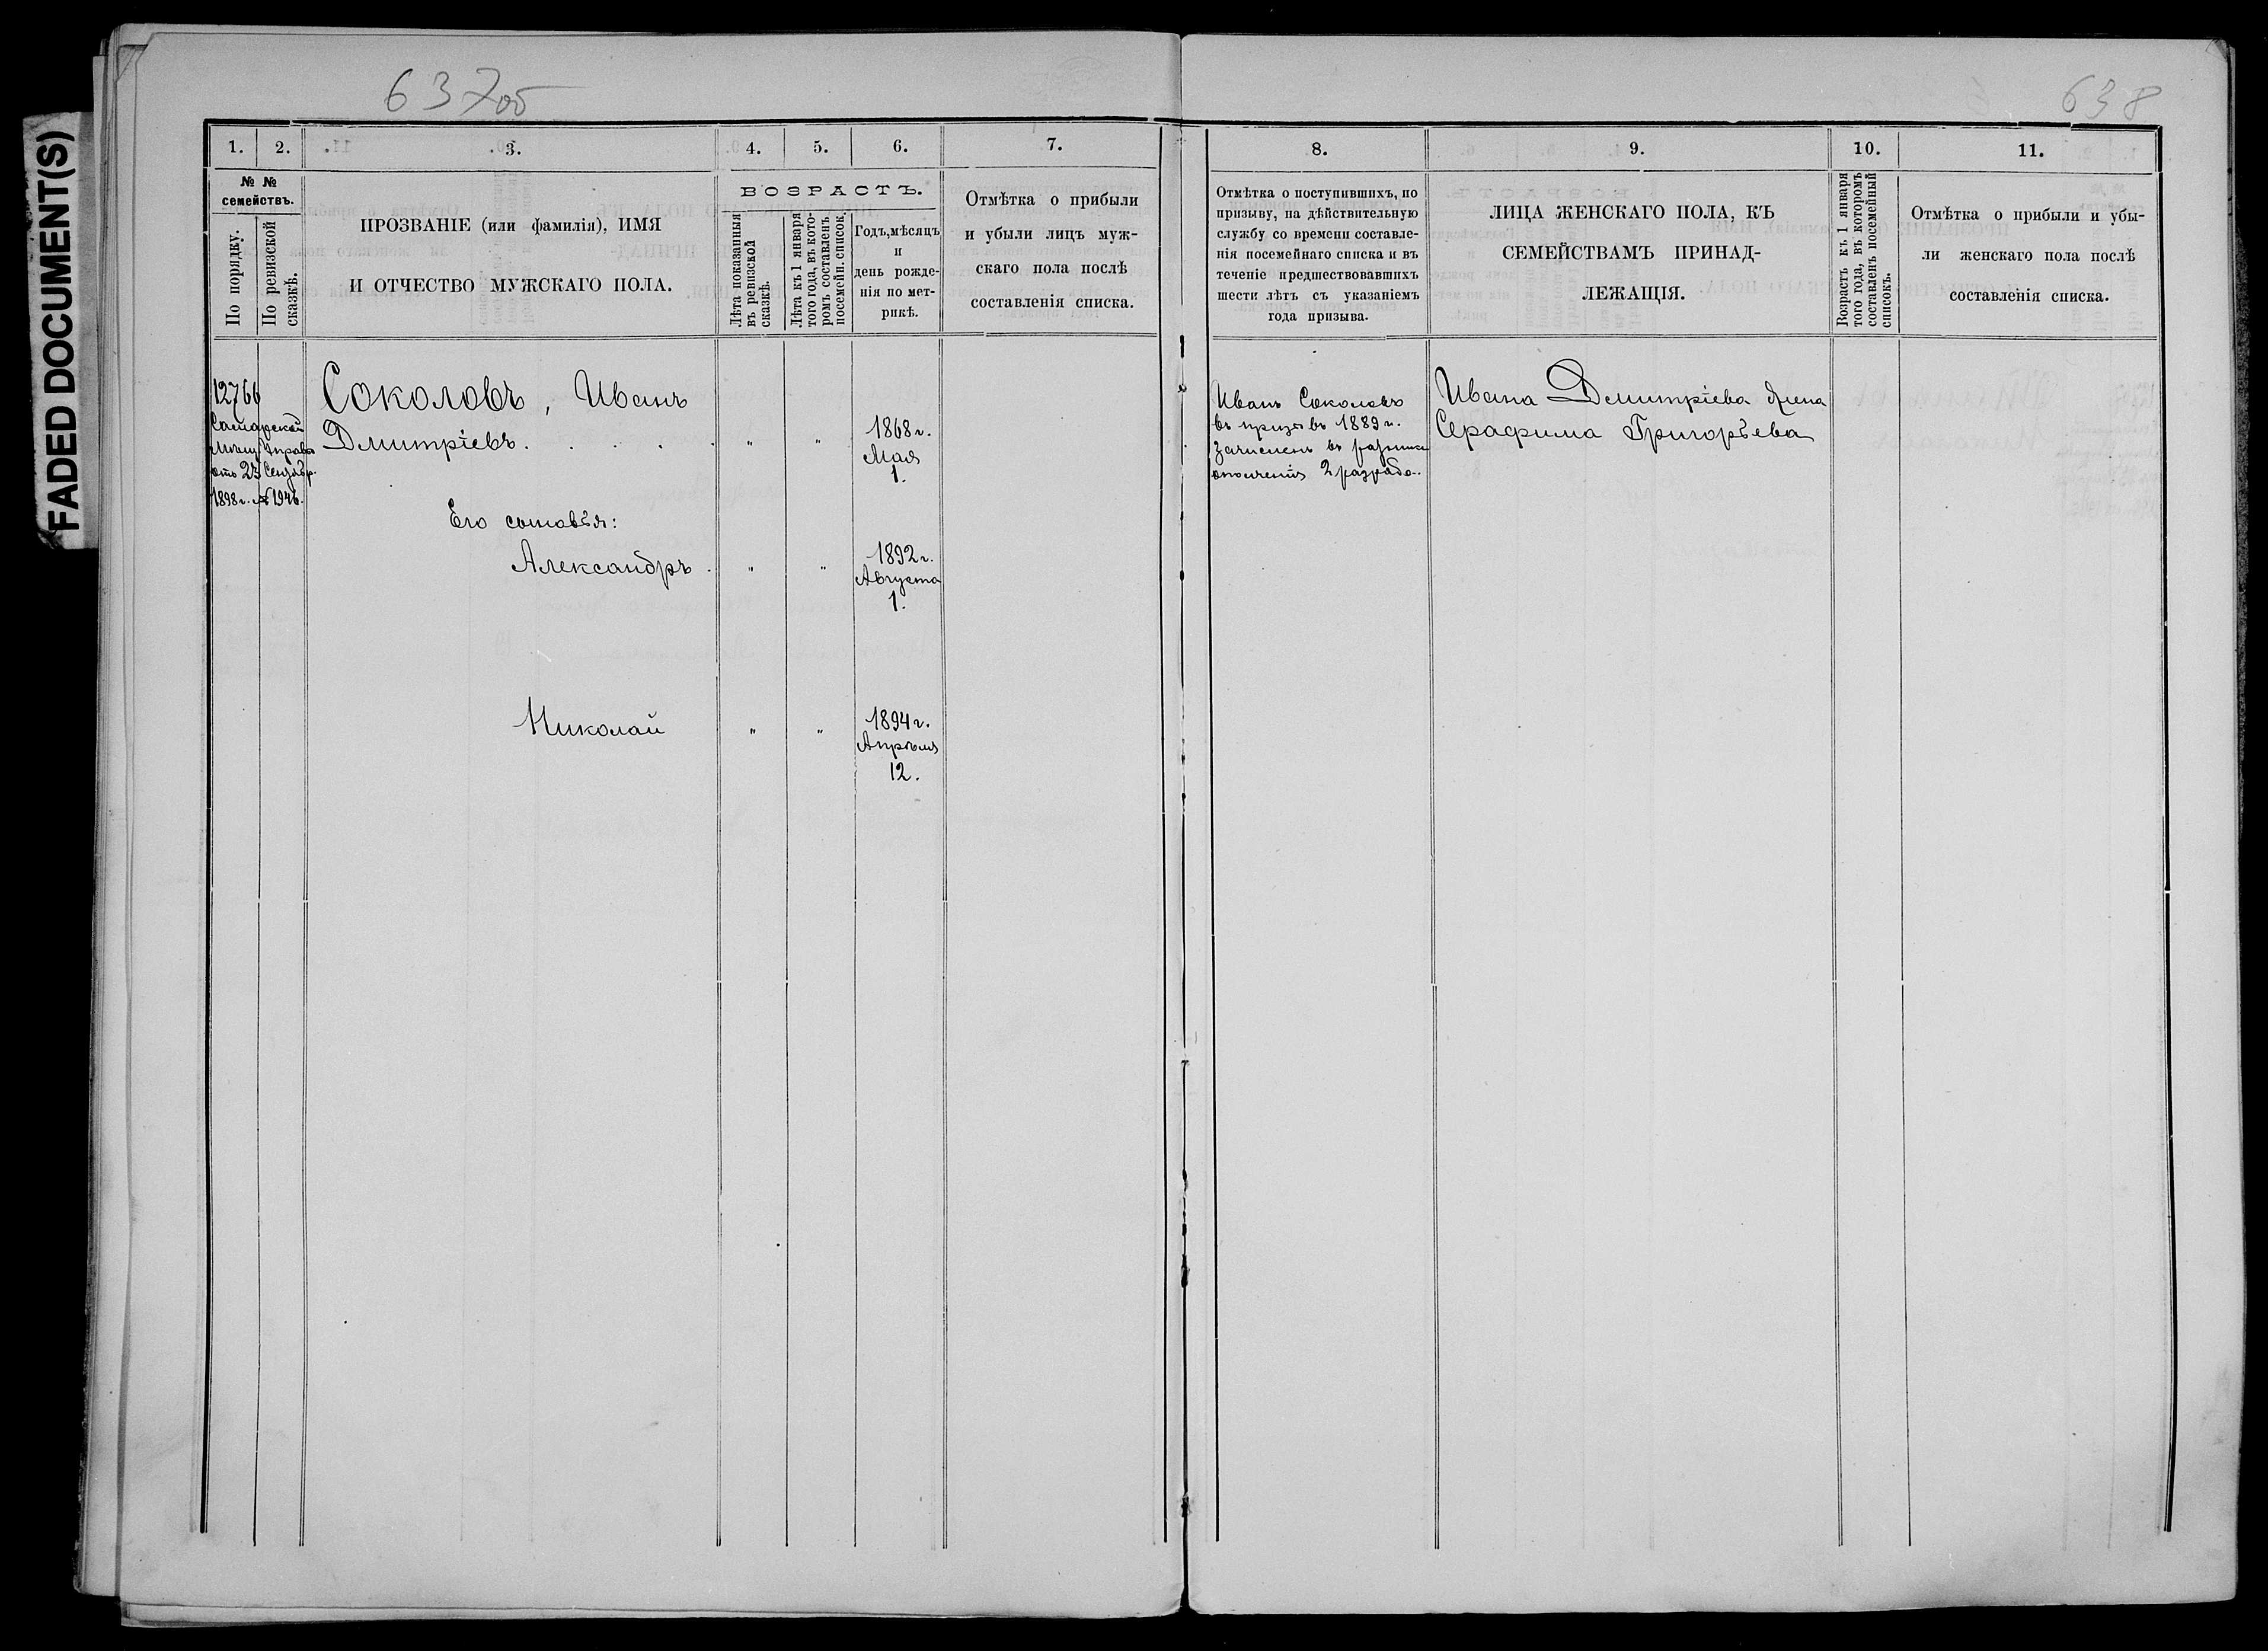 637 об
638
FADED DOCUMENT(S)
1. 2. 3. 4. 5. 6. 7.
№ №
семействъ.
По порядку.
По ревизской
сказкѣ.
ПРОЗВАНІЕ (или фамилія), ИМЯ
И ОТЧЕСТВО МУЖСКАГО ПОЛА.
ВОЗРАСТЪ.
Лѣта показанныя
въ ревизской
сказкѣ.
Лѣта къ 1 января
того года, въ кото-
ромъ составленъ
посемейн. список.
Годъ, мѣсяцъ
и
день рожде-
нія по мет-
рикѣ.
Отмѣтка о прибыли
и убыли лицъ муж-
скаго пола послѣ
составленія списка.
12766
Самарской
Мѣщ. Управы
отъ 23 Сентябр.
1898 г. № 1946.
Соколовъ, Иванъ
Дмитріевъ. . . . . " " 1868 г.
Мая
1.
Его сыновья:
Александръ . " " 1892 г.
Августа
1.
Николай " " 1894 г.
Апрѣля
12.
8. 9. 10. 11.
Отмѣтка о поступившихъ, по
призыву, на дѣйствительную
службу со времени составле-
нія посемейнаго списка и въ
теченіе предшествовавшихъ
шести лѣтъ съ указаніемъ
года призыва.
ЛИЦА ЖЕНСКАГО ПОЛА, КЪ
СЕМЕЙСТВАМЪ ПРИНАД-
ЛЕЖАЩІЯ.
Возрастъ къ 1 января
того года, въ которомъ
составленъ посемейный
списокъ.
Отмѣтка о прибыли и убы-
ли женскаго пола послѣ
составленія списка.
Иванъ Соколовъ
въ призывъ 1889 г.
зачисленъ въ ратники
ополченія 2 разряда.
Ивана Дмитріева жена
Серафима Григорьева